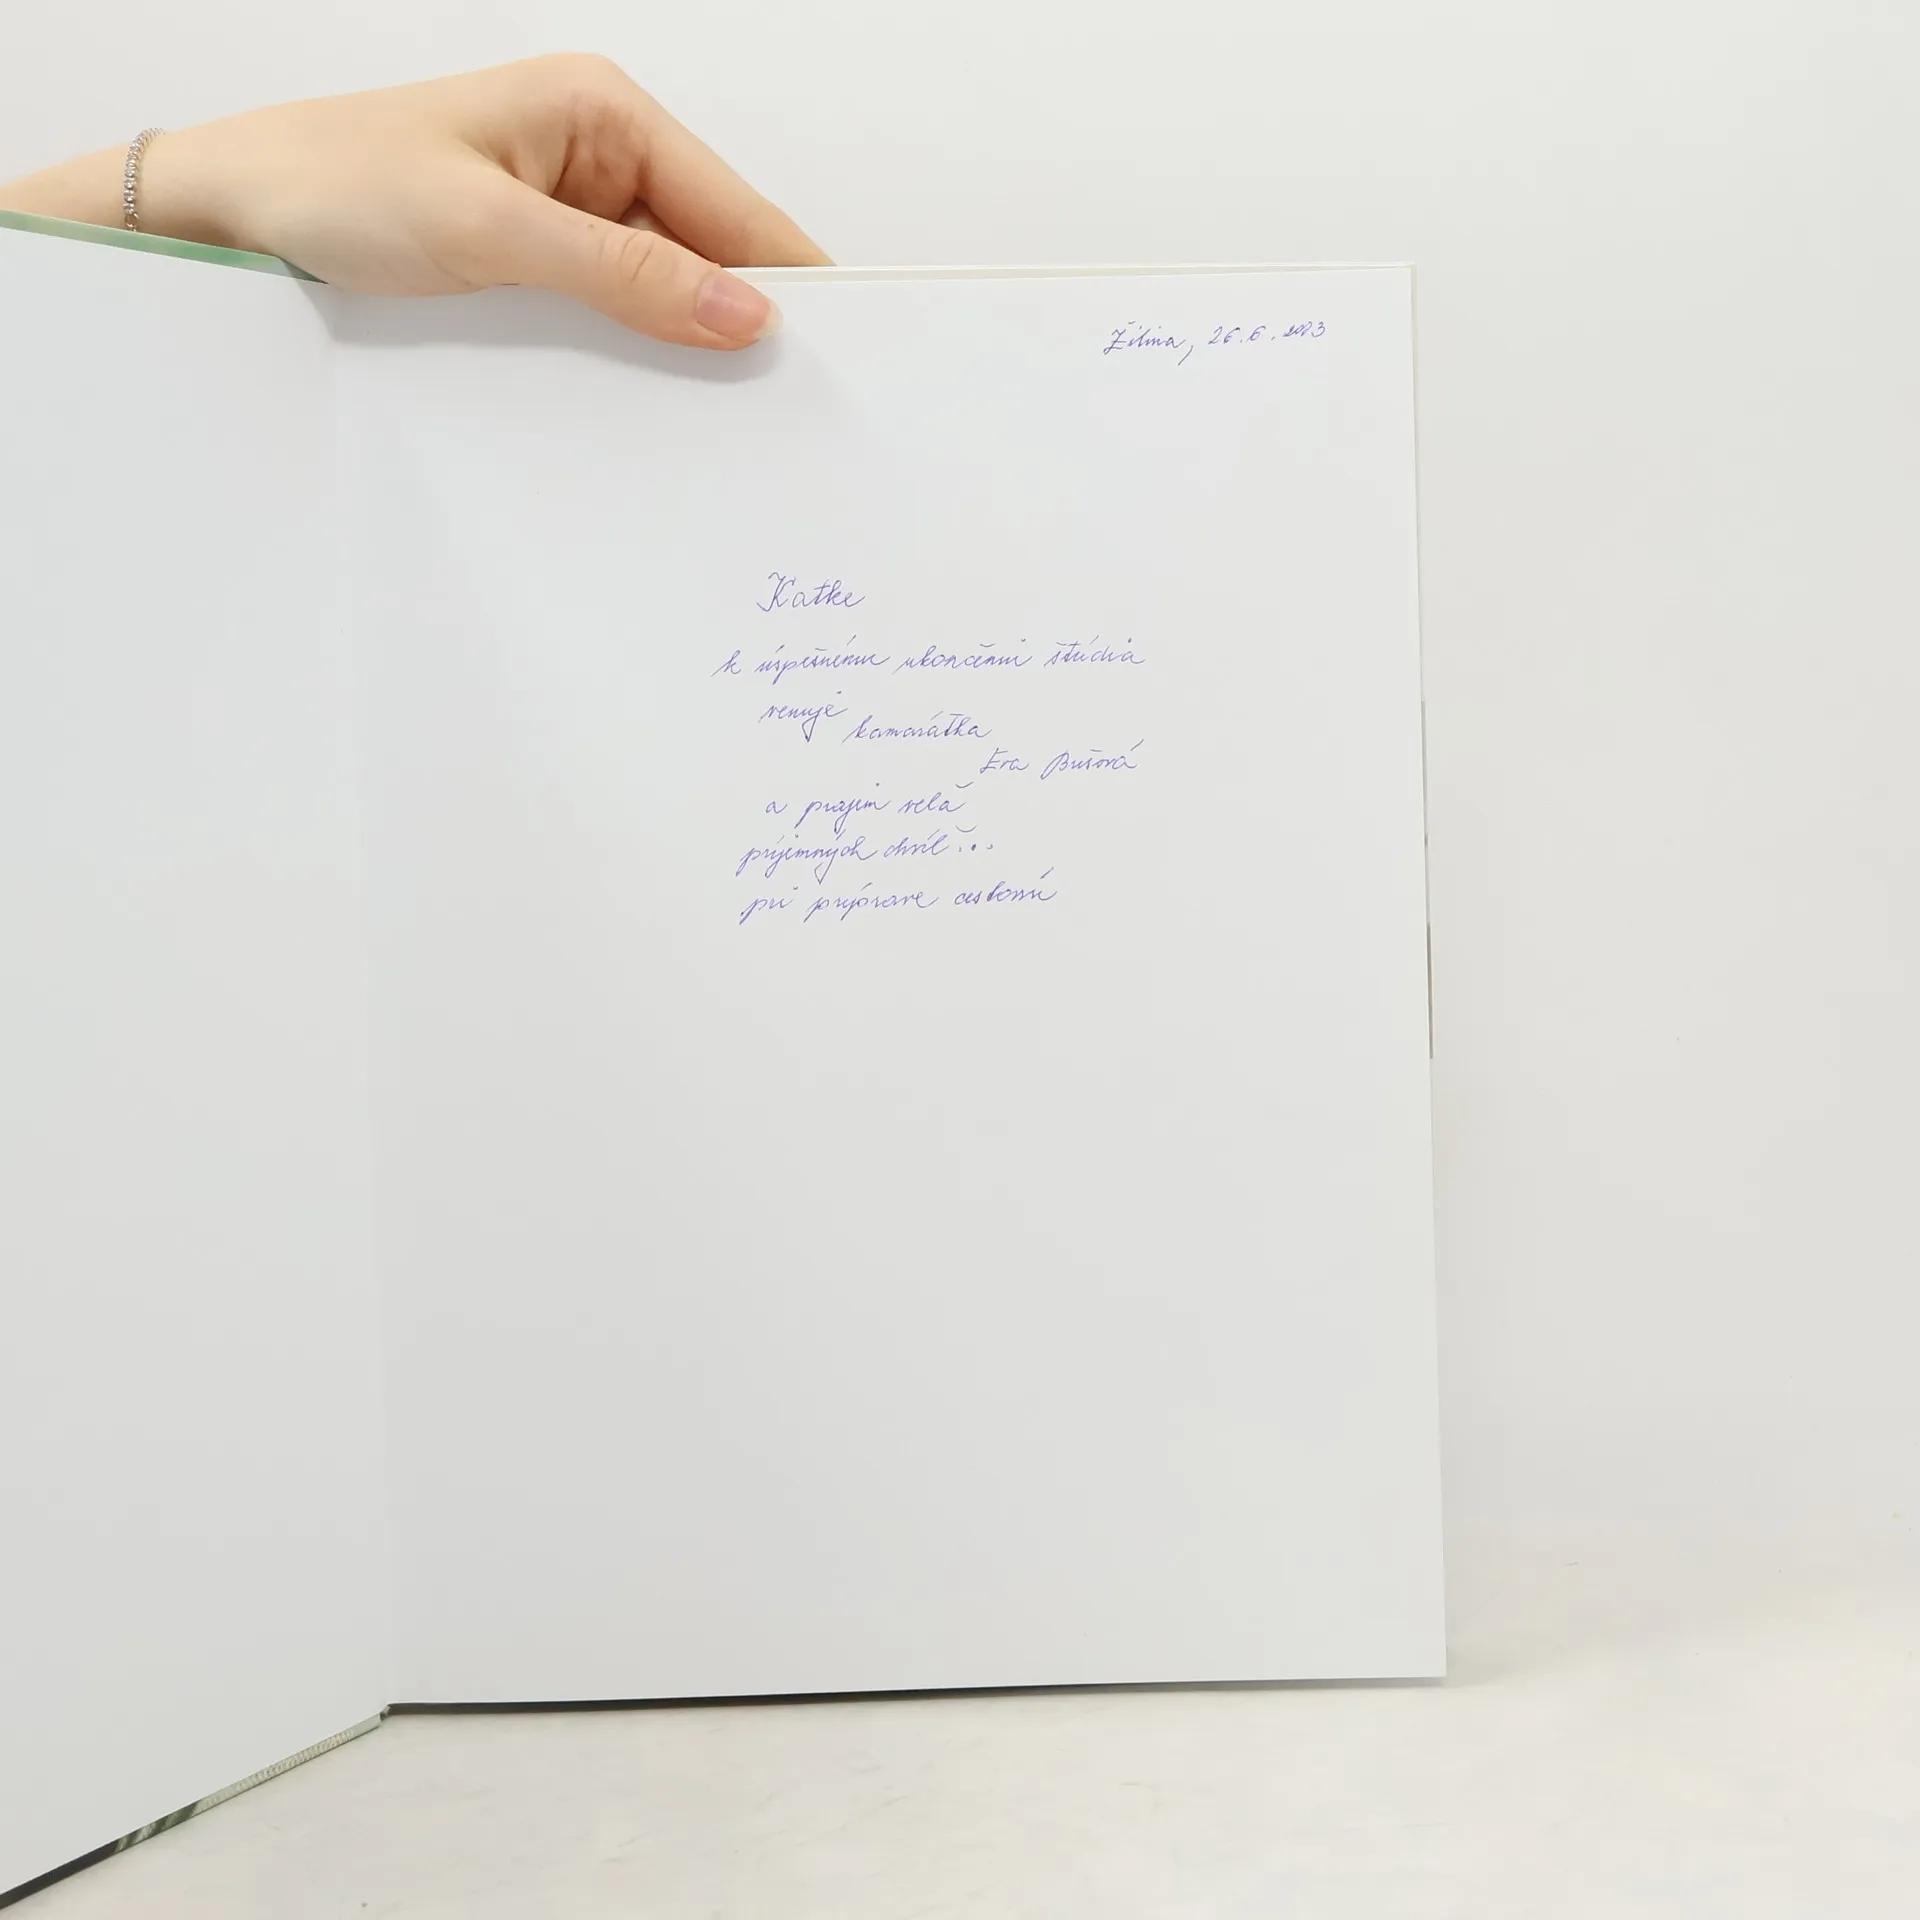 Žilina, 26.6.2003
Katke
k úspešnému ukončeniu štúdia
venuje
kamarátka
Eva Bušová
a prajem veľa
príjemných chvíľ...
pri príprave cestovín